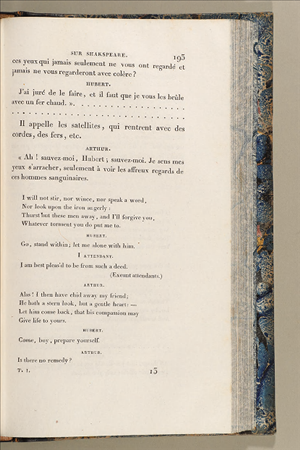 SUR SHAKSPEARE. 193
ces yeux qui jamais seulement ne vous ont regardé et
jamais ne vous regarderont avec colère?
HUBERT.
J'ai juré de le faire, et il faut que je vous les brûle
avec un fer chaud. ». . . . . . . . . . . . . . . . . . . .
. . . . . . . . . . . . . . . . . . . . . . . . . . . . . .
Il appelle les satellites, qui rentrent avec des
cordes, des fers, etc.
ARTHUR.
« Ah! sauvez-moi, Hubert; sauvez-moi. Je sens mes
yeux s'arracher, seulement à voir les affreux regards de
ces hommes sanguinaires.
I will not stir, nor wince, nor speak a word,
Nor look upon the iron angerly:
Thurst but these men away, and I'll forgive you,
Whatever torment you do put me to.
HUBERT.
Go, stand within; let me alone with him.
I ATTENDANT.
I am best pleas'd to be from such a deed.
(Exeunt attendants.)
ARTHUR.
Alas! I then have chid away my friend;
He hath a stern look, but a gentle heart: —
Let him come back, that his compassion may
Give life to yours.
HUBERT.
Come, boy, prepare yourself.
ARTHUR.
Is there no remedy?
T. I. 13